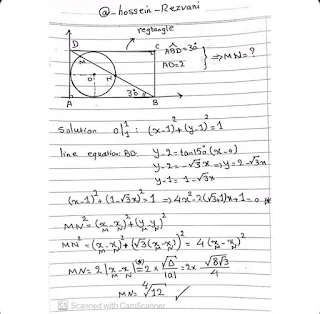 @-hossein-Rezvani
regtangle
D
C
M
N
O
A
B
30
ABD=30°
AD=2
⇒MN=?
Solution O|1 1 : (x-1)²+(y-1)²=1
line equation: BD: y-2=tan150(x-0)
y-2=-√3x⇒y=2-√3x
y-1=1-√3x
(x-1)²+(1-√3x)²=1 ⇒4x²-2(√3+1)x+1=0 *
MN²=(x_M-x_N)²+(y_M-y_N)²
MN²=(x_M-x_N)²+(√3(x_M-x_N))²=4(x_M-x_N)²
MN=2|x_M-x_N|(*)=2x √Δ/|a|=2x √8√3/4
MN=⁴√12 ✓
CS Scanned with CamScanner